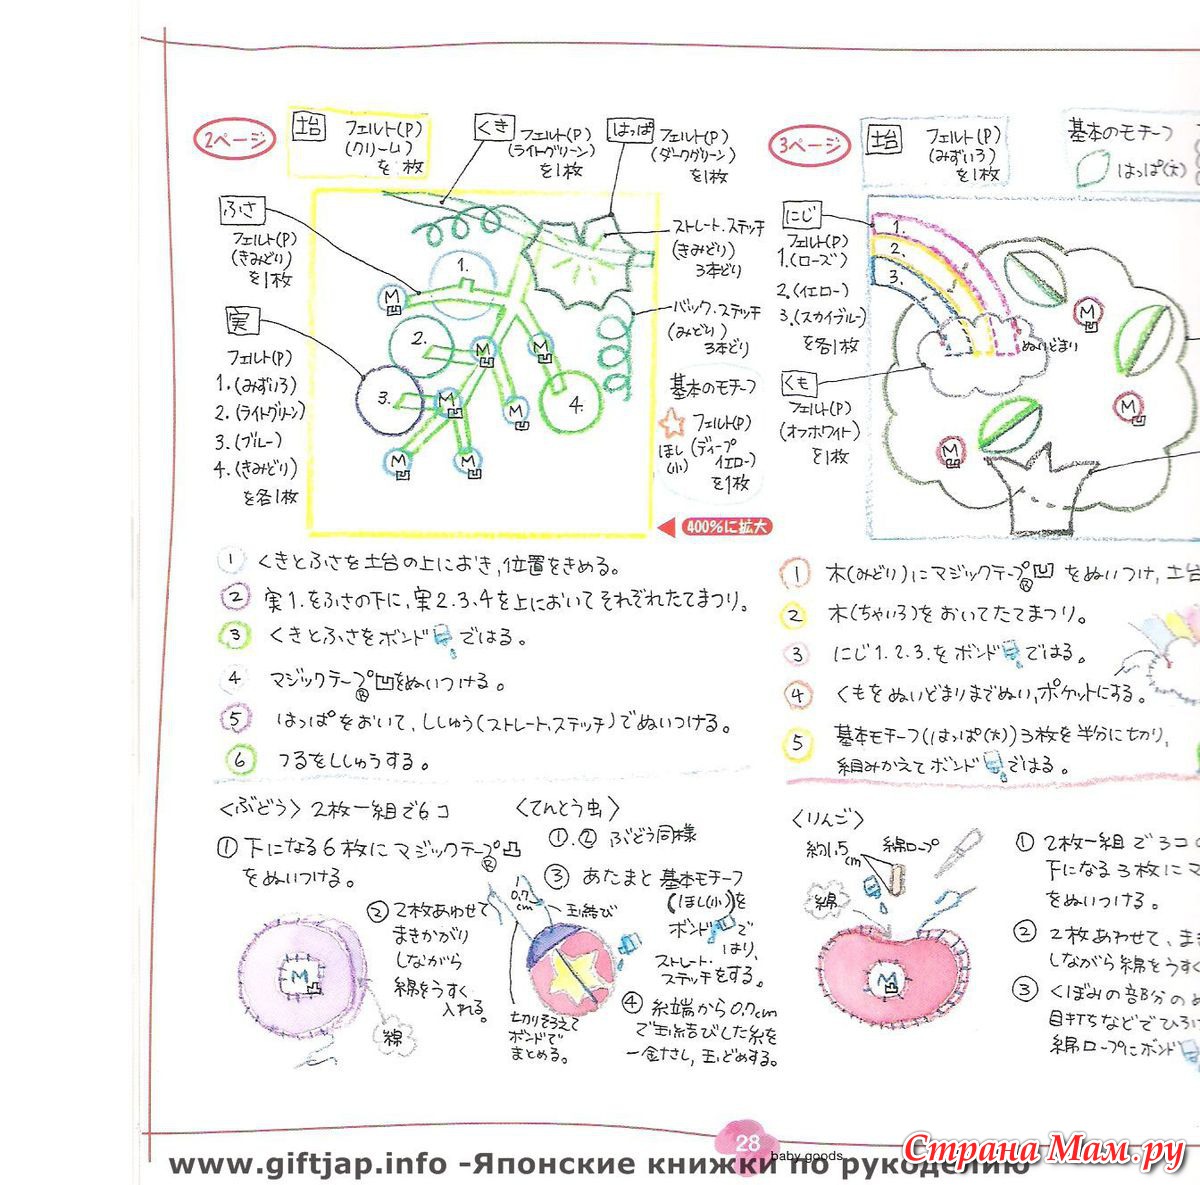 2ページ
土台
フェルト(P)
(クリーム)
を 枚
くき
フェルト(P)
(ライトグリーン)
を1枚
はっぱ
フェルト(P)
(ダークグリーン)
を1枚
ふさ
フェルト(P)
(きみどり)
を1枚
実
フェルト(P)
1.(みずいろ)
2.(ライトグリーン)
3.(ブルー)
4.(きみどり)
を各1枚
1.
2.
3.
4.
M
M
M
M
M
M
M
ストレート.ステッチ
(きみどり)
3本どり
バック.ステッチ
(みどり)
3本どり
基本のモチーフ
フェルト(P)
ほし(小)
(ディープ
イエロー)
を1枚
400%に拡大
① くきとふさを土台の上におき,位置をきめる。
② 実1.をふさの下に,実2.3.4を上においてそれぞれたてまつり。
③ くきとふさをボンド ではる。
④ マジックテープ®凹をぬいつける。
⑤ はっぱをおいて,ししゅう(ストレート.ステッチ)でぬいつける。
⑥ つるをししゅうする。
3ページ
土台
フェルト(P)
(みずいろ)
を1枚
基本のモチーフ
はっぱ(大)
にじ
フェルト(P)
1.(ローズ)
2.(イエロー)
3.(スカイブルー)
を各1枚
くも
フェルト(P)
(オフホワイト)
を1枚
1.
2.
3.
ぬいどまり
M
M
M
① 木(みどり)にマジックテープ®凹 をぬいつけ,土台
② 木(ちゃいろ)をおいてたてまつり。
③ にじ1.2.3.をボンド ではる。
④ くもをぬいどまりまでぬい,ポケットにする。
⑤ 基本モチーフ(はっぱ(大))3枚を半分に切り,
組みかえてボンド ではる。
〈ぶどう〉2枚一組で6コ
① 下になる6枚にマジックテープ®凸
をぬいつける。
② 2枚あわせて
まきかがり
しながら
綿をうすく
入れる。
M
綿
〈てんとう虫〉
①.② ぶどう同様
③ あたまと基本モチーフ
(ほし(小))を
ボンド で
はり,
ストレート.
ステッチをする。
④ 糸端から0.7cm
で玉結びした糸を
一針さし,玉どめする。
0.7
cm
玉結び
切りそろえて
ボンドで
まとめる。
〈りんご〉
約1.5
cm
綿ロープ
綿
M
① 2枚一組で3コ
下になる3枚にマ
をぬいつける。
② 2枚あわせて,ま
しながら綿をうすく
③ くぼみの部分の
目打ちなどでひろ
綿ロープにボンド
28
baby goods
www.giftjap.info -Японские книжки по рукоделию
Страна Мам.ру